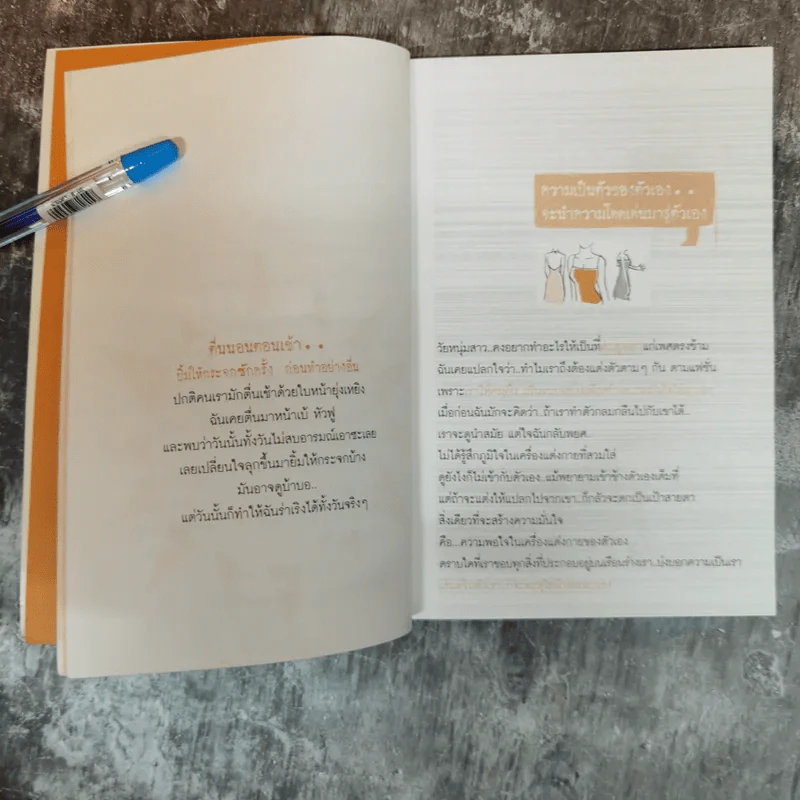 ตื่นนอนตอนเช้า..
ยิ้มให้กระจกซักครั้ง ก่อนทำอย่างอื่น
ปกติคนเรามักตื่นเช้าด้วยใบหน้ายุ่งเหยิง
ฉันเคยตื่นมาหน้าเบ้ หัวฟู
และพบว่าวันนั้นทั้งวันไม่สบอารมณ์เอาซะเลย
เลยเปลี่ยนใจลุกขึ้นมายิ้มให้กระจกบ้าง
มันอาจดูบ้าบอ..
แต่วันนั้นก็ทำให้ฉันร่าเริงได้ทั้งวันจริงๆ
ความเป็นตัวของตัวเอง..
จะนำความโดดเด่นมาสู่ตัวเอง
วัยหนุ่มสาว..คงอยากทำอะไรให้เป็นที่ แก่เพศตรงข้าม
ฉันเคยแปลกใจว่า..ทำไมเราถึงต้องแต่งตัวตามๆ กัน ตามแฟชั่น
เพราะ
เมื่อก่อนฉันมักจะคิดว่า..ถ้าเราทำตัวกลมกลืนไปกับเขาได้..
เราจะดูนำสมัย แต่ใจฉันกลับพยศ..
ไม่ได้รู้สึกภูมิใจในเครื่องแต่งกายที่สวมใส่
ดูยังไงก็ไม่เข้ากับตัวเอง..แม้พยายามเข้าข้างตัวเองเต็มที่
แต่ถ้าจะแต่งให้แปลกไปจากเขา..ก็กลัวจะตกเป็นเป้าสายตา
สิ่งเดียวที่จะสร้างความมั่นใจ
คือ...ความพอใจในเครื่องแต่งกายของตัวเอง
ตราบใดที่เราชอบทุกสิ่งที่ประกอบอยู่บนเรือนร่างเรา..บ่งบอกความเป็นเรา